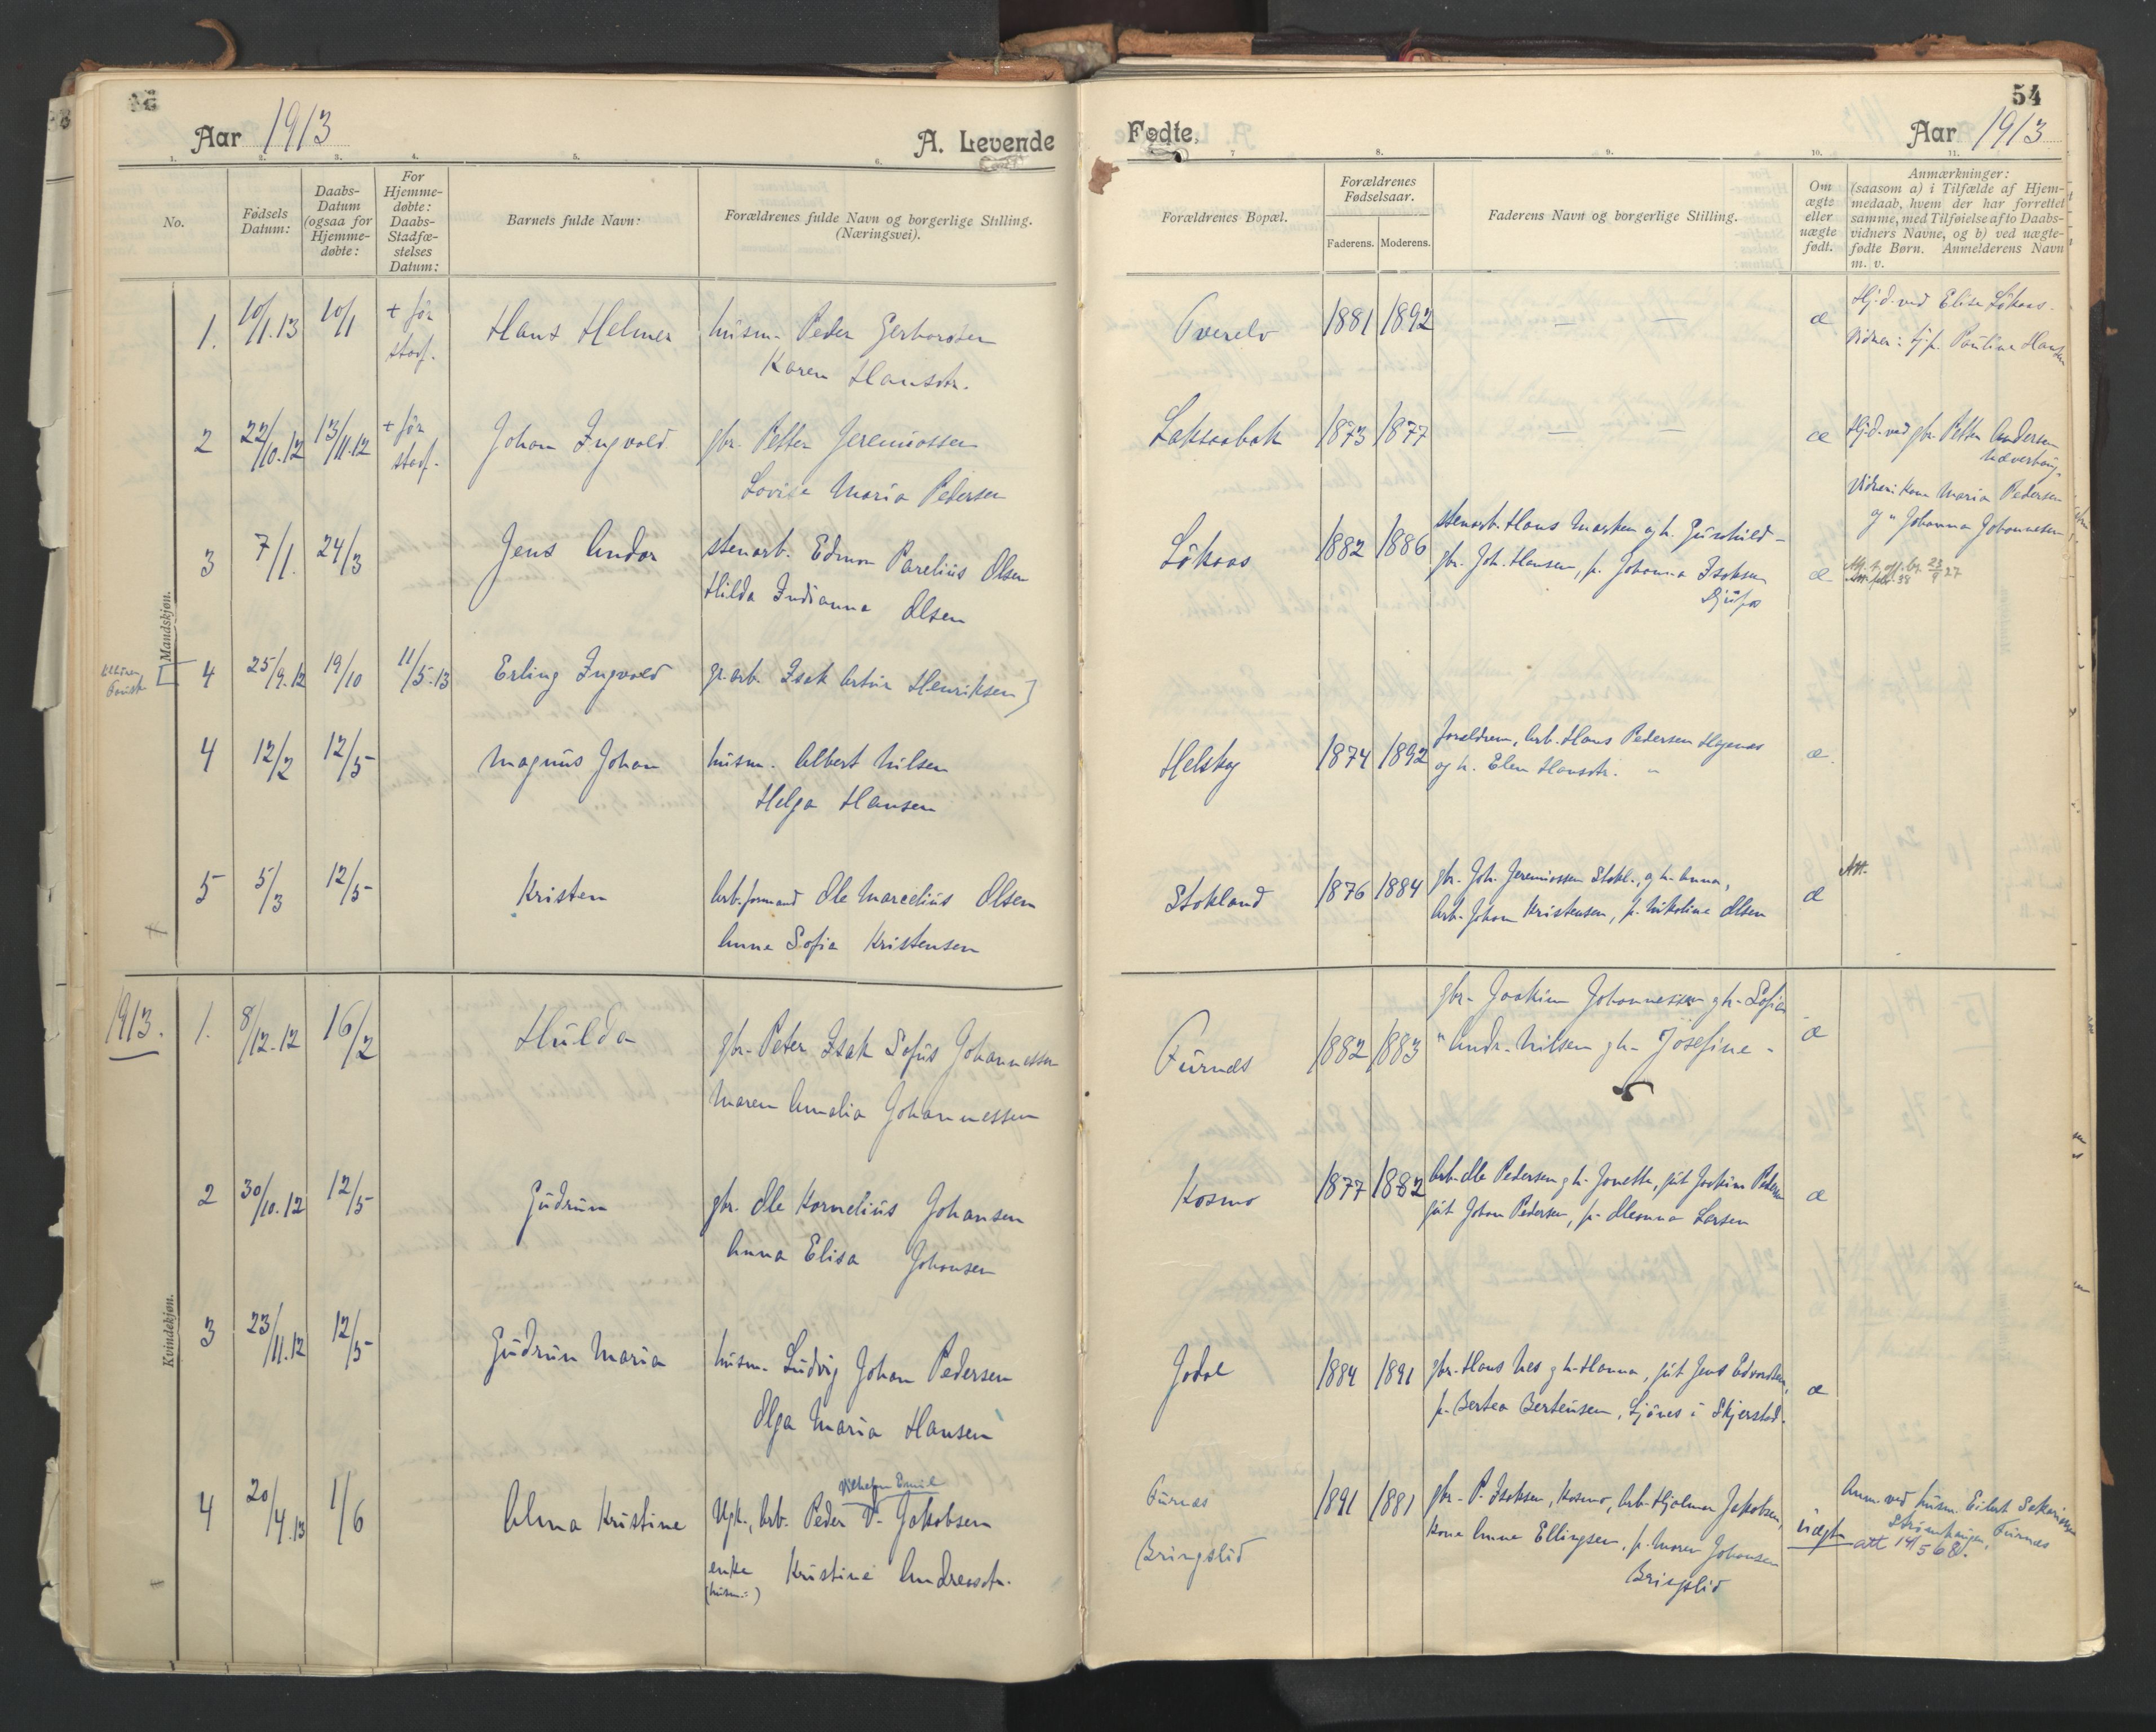 54
Aar 1913
A. Levende
Fødte.
Aar 1913
1. 2. 3. 4. 5. 6. 7 8. 9. 10. 11.
No.
Fødsels
Datum:
Daabs-
Datum
(ogsaa for
Hjemme-
døbte:
For
Hjemme-
døbte:
Daabs-
Stadfæ-
stelses
Datum:
Barnets fulde Navn:
Forældrenes fulde Navn og borgerlige Stilling.
(Næringsvei).
Forældrenes Bopæl.
Forældrenes
Fødselsaar.
Faderens. Moderens.
Faderens Navn og borgerlige Stilling.
Om
ægte
eller
uægte
født.
Anmærkninger:
(saasom a) i Tilfælde af Hjem-
medaab, hvem der har forrettet
samme, med Tilføielse af to Daabs-
vidners Navne, og b) ved uægte-
fødte Børn. Anmelderens Navn
m. v.
Mandskjøn.
1. 10/1.13 10/1 + før Hans Helmer husm. Peder Gerhardsen Tverelv 1881 1892 — — æ Hj.d. ved Elise Løkaas.
stadf. Karen Hansdtr. Vidner: tj.p. Pauline Hansen
2 22/10.12 13/11.12 + før Johan Ingvald gbr. Petter Jeremiassen Laksaabak 1873 1877 — — æ Hj.d. ved gbr. Petter Andersen
stadf. Lovise Maria Pedersen Næverhaug.
Vidner: Kone Maria Pedersen
og " Johanna Johannesen
3 7/1. 24/3 Jens Andor stenarb. Edmon Parelius Olsen Løkaas 1882 1886 stenarb. Hans Marken og h. Gunhild -
Hilda Indianna Olsen gbr. Joh. Hansen, p. Johanna Isaksen æ.
Djupos
4 25/9.12 19/10 11/5.13 Erling Ingvald gr.arb. Isak Artur Henriksen]
4 12/2 12/5 Magnus Johan husm. Albert Nilsen Helskog 1874 1892 forældrene, Arb. Hans Pedersen Hagenes æ.
Helga Hansen og h. Elen Hansdtr. "
5 5/3 12/5 Kristen Arb.formand Ole Marcelius Olsen Stokland 1876 1884 gbr. Joh. Jeremiassen Stokl., og h. Anna, æ Att.
Anna Sofia Kristensen Arb. Johan Kristensen, p. Nikoline Olsen
Kvindekjøn.
1913. 1. 8/12.12 16/2 Hulda gbr. Peter Isak Sofus Johannessen Furnes 1882 1883 gbr. Joakim Johannessen g h. Sofia æ
Maren Amalia Johannessen " Andr. Nilsen g h. Josefine -
2 30/10.12 12/5 Gudrun gbr. Ole Kornelius Johansen Kosmo 1877 1882 Arb. Ole Pedersen g h. Jonette, gut Joakim Pedersen æ
Anna Elisa Johansen gut Johan Pedersen, p. Oleanna Larsen
3 23/11.12 12/5 Gudrun Maria husm. Ludvig Johan Pedersen Jodal 1884 1891 gbr. Hans Nes g h. Hanna, gut Jens Edvardsen, æ
Olga Maria Hansen p. Bertea Berteusen, Ljønes i Skjerstad.
Vilhelm Emil
4 20/4.13 1/6 Alma Kristine Ugk., Arb. Peder V. Jakobsen Furnes 1891 1881 gbr. P. Isaksen, Kosmo, Arb. Hjalmar Jakobsen, uægte Anm. ved husm. Eilert Sakariassen
enke Kristine Andreasdtr. Bringslid Kone Anna Ellingsen, p. Maren Johansen Strømhaugen, Furnes
(husm.) Bringslid att 14/5 68.